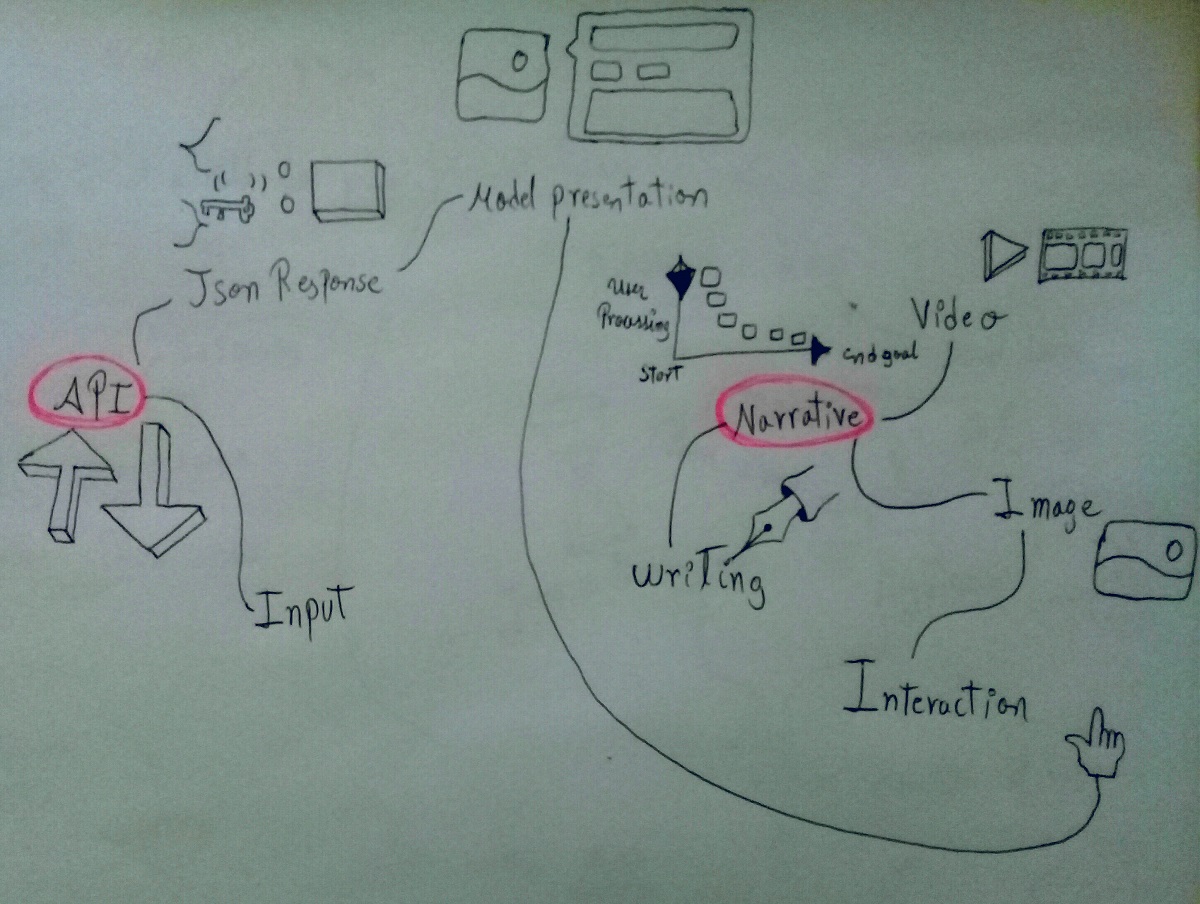 Model presentation
Json Response
API
Input
User
Processing
Start
End goal
Video
Narrative
Writing
Image
Interaction